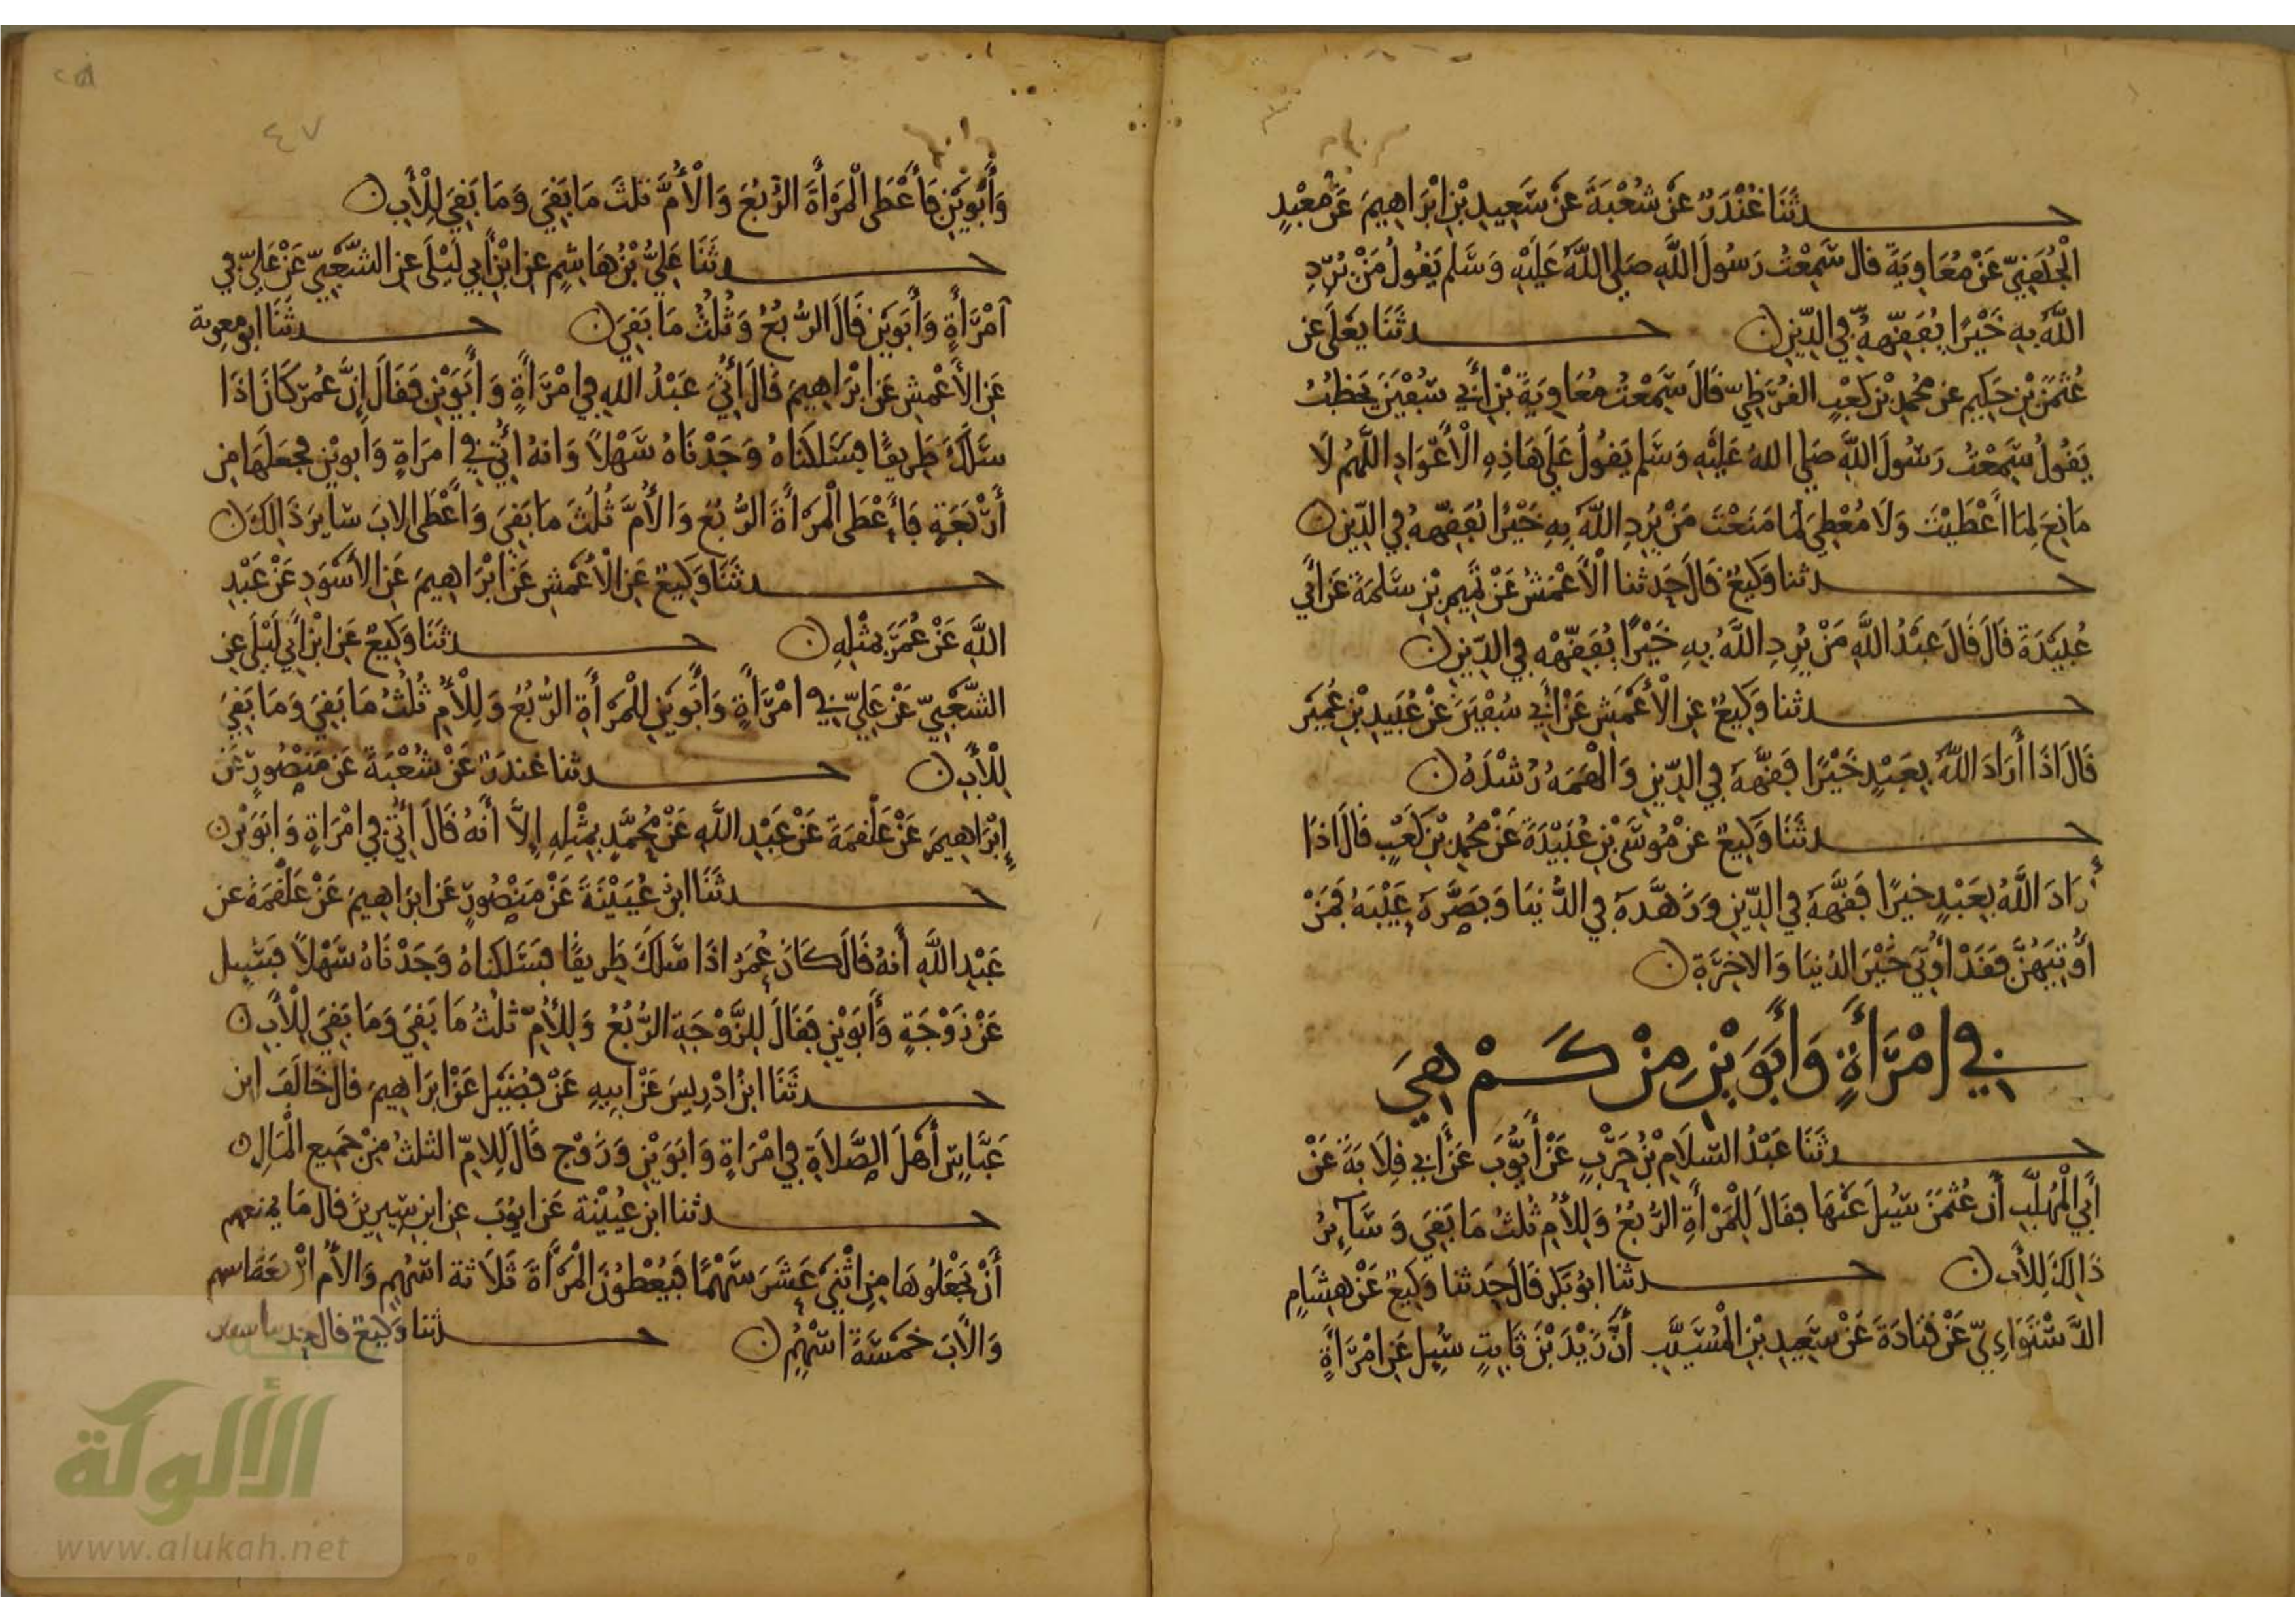 حـــدثَنَا غُنْدَرٌ عَنْ شُعْبَةَ عَنْ سَعِيدِ بْنِ ابْرَاهِيمَ عَنْ مَعْبَدٍ
الْجُهَنِيِّ عَنْ مُعَاوِيَةَ قال سَمِعْتُ رَسُولَ اللَّهِ صَلى اللَّهُ عَلَيْهِ وَسَلم يَقُولُ مَنْ يُرِدِ
اللَّهُ بِهِ خَيْرًا يُفَقِّهْهُ فِي الدِّينِ ن حـــدثَنَا يَعْلَى عن
عُثمٰنَ بْنِ حَكِيمٍ عن مُحمدِ بْنِ كَعْبٍ القُرَظِيِّ قَالَ سَمِعْتُ مُعَاوِيَةَ بْنَ أَبِي سُفْيَنَ يَخْطُبُ
يَقُولُ سَمِعْتُ رَسُولَ اللَّهِ صَلى اللهُ عَلَيْهِ وَسَلم يَقُولُ عَلَى هَاذِهِ الْأَعْوَادِ اللَّهُمَّ لَا
مَانِعَ لِمَا أَعْطَيْتَ وَلَا مُعْطِيَ لِمَا مَنَعْتَ مَنْ يُرِدِ اللَّهُ بِهِ خَيْرًا يُفَقِّههُ فِي الدِّينِ ن
حـــدثنا وَكِيعٌ قَالَ حَدثنا الْأَعْمَشُ عَنْ تَمِيمِ بْنِ سَلَمَةَ عَنْ أَبِي
عُبَيْدَةَ قَالَ قَالَ عَبْدُ اللَّهِ مَنْ يُرِدِ اللَّهُ بِهِ خَيْرًا يُفَقِّهْهُ فِي الدِّينِ ن
حـــدثنا وَكِيعٌ عَنِ الْأَعْمَشِ عَنْ أَبِي سُفْيَنَ عَنْ عُبَيْدِ بْنِ عُمَيْرٍ
قَالَ اذَا أَرَادَ اللَّهُ بِعَبْدٍ خَيْرًا فَقَّهَهُ فِي الدِّينِ وَالْهَمَهُ رُشْدَهُ ن
حـــدثَنَا وَكِيعٌ عَنْ مُوسَى بْنِ عُبَيْدَةَ عَنْ مُحمدِ بْنِ كَعْبٍ قَالَ اذَا
أَرَادَ اللَّهُ بِعَبْدٍ خيرًا فَقَّهَهُ فِي الدِّينِ وَزَهَّدَهُ فِي الدُّنيَا وَبَصَّرَهُ عَيْبَهُ فَمَنْ
أُوتِيَهُنَّ فَقَدْ أُوتِيَ خَيْرَ الدُّنيَا وَالاخِرَةِ ن
فِي امْرَأَةٍ وَأَبَوَيْنِ مِنْ كَمْ هِيَ
حـــدثَنَا عَبْدُ السَّلَامِ بْنُ حَرْبٍ عَنْ أَيُّوبَ عَنْ أَبِي قِلَابَةَ عَنْ
أَبِي الْمُهَلَّبِ أَن عُثمَنَ سُئِلَ عَنْهَا فقَالَ لِلْمَرْأَةِ الرُّبُعُ وَلِلأُمِّ ثُلُثُ مَا بَقِيَ وَسَآئِرُ
ذَالِكَ لِلأَبِ ن حـــدثنا ابُو بَكر قَالَ حَدثنا وَكِيعٌ عَنْ هِشَامٍ
الدَّسْتَوَاءِيِّ عَنْ قتَادَةَ عَنْ سَعِيدِ بْنِ الْمُسَيَّبِ أَنَّ زَيْدَ بْنَ ثَابِتٍ سُئِلَ عَنِ امْرَأَةٍ
٤٧
وَأَبَوَيْنِ فَأَعْطَى الْمَرْأَةَ الرُّبُعَ وَالْأُمَّ ثلثَ مَا بَقِيَ وَمَا بَقِيَ لِلْأَبِ ن
حـــدثَنَا عَلِيُّ بْنُ هَاشِمٍ عن ابْنِ أَبِي لَيْلَى عن الشَّعْبِيِّ عَنْ عَلِيٍّ فِي
امْرَأَةٍ وَأَبَوَيْنِ قَالَ الرُّبُعُ وَثُلُثُ مَا بَقِيَ ن حـــدثَنَا ابو معوية
عَنِ الأَعْمشِ عَنْ ابْرَاهِيمَ قَالَ أُتِيَ عَبْدُ اللهِ فِي امْرَأَةٍ وَأَبَوَيْنِ فَقَالَ إِنَّ عُمَرَ كَانَ اذَا
سَلَكَ طَرِيقًا فسَلَكنَاهُ وَجَدْنَاهُ سَهْلًا وَانهُ أُتِيَ فِي امرَاةٍ وَابويْنِ فجعَلَهَا مِن
أَرْبَعَةٍ فَأَعْطَى الْمَرْأَةَ الرُّبُعَ وَالأُمَّ ثُلُثَ مَا بَقِيَ وَأَعْطَى الابَ سايرَ ذَالِكَ ن
حـــدثَنَا وَكِيعٌ عَنِ الْأَعْمَشِ عَنْ ابْرَاهِيمَ عَنِ الأَسْوَدِ عَنْ عَبْدِ
اللَّهِ عَنْ عُمَرَ بِمثْلِهِ ن حـــدثَنَا وَكِيعٌ عَنِ ابْنِ أَبِي لَيْلَى عن
الشَّعْبِيِّ عَنْ عَلِيٍّ فِي امْرَأَةٍ وَأَبَوَيْنِ لِلْمَرْأَةِ الرُّبُعُ وَلِلْأُمِّ ثُلُثُ مَا بَقِيَ وَمَا بَقِيَ
لِلْأَبِ ن حـــدثنا غندَرٌ عَنْ شُعْبَةَ عَنْ مَنْصُورٍ عَنْ
إِبْرَاهِيمَ عَنْ عَلْقَمَةَ عَنْ عَبْدِ اللَّهِ عَنْ مُحَمَّدٍ بِمِثْلِهِ إِلَّا أَنهُ قَالَ أُتِيَ فِي امْرَاةٍ وَابَوَيْنِ ن
حـــدثَنَا ابن عُيَيْنَةَ عَنْ مَنْصُورٍ عَن ابرَاهِيمَ عَنْ عَلْقَمَةَ عن
عَبْدِ اللَّهِ أَنهُ قَالَ كَانَ عُمَرُ اذَا سَلَكَ طَرِيقًا فسَلَكنَاهُ وَجَدْنَاهُ سَهْلًا فسُئِل
عَنْ زَوْجَةٍ وَأَبَوَيْنِ فقَالَ لِلزَّوْجَةِ الرُّبُعُ وَلِلأُمِّ ثلثُ مَا بَقِيَ وَمَا بَقِيَ لِلْأَبِ ن
حـــدثَنَا ابنُ ادْرِيسَ عَنْ ابِيهِ عَنْ فُضَيْلٍ عَنْ ابرَاهِيمَ قال خَالَفَ ابن
عَبَّاسٍ أَهْلَ الصَّلَاةِ فِي امْرَاةٍ وَابَوَيْنِ وَزَوْجٍ قَالَ لِلامِّ الثلثُ مِنْ جَمِيعِ الْمَالِ ن
حـــدثنا ابن عُيَيْنة عَن ايُوبَ عن ابن سِيرِينَ قال مَا يمنعهم
أَنْ يَجْعَلُوهَا مِنِ اثْنَيْ عَشَرَ سَهْمًا فَيُعْطُونَ الْمَرْأَةَ ثَلَاثة اسْهُمٍ وَالأُمَّ ارْبَعَةَ اسهم
وَالْأَبَ خَمْسَةَ اسْهُمٍ ن حـــدثنا وَكِيعٌ قال حدثنا
الألوكة
www.alukah.net